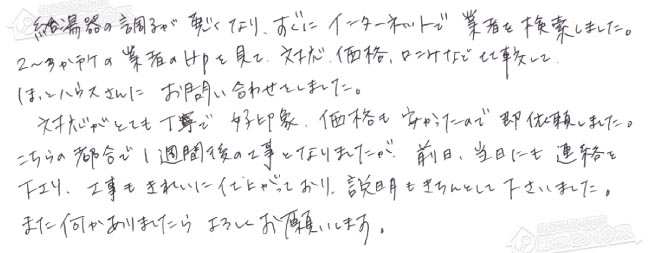 給湯器の調子が悪くなり、すぐにインターネットで業者を検索しました。
2〜3か所の業者のHpを見て、対応、価格、口コミなど比較して
ほっとハウスさんにお問い合わせをしました。
対応がとても丁寧で好印象、価格も安かったので即依頼しました。
こちらの都合で1週間後の工事となりましたが、前日、当日にも連絡を
下さり、工事もきれいに仕上がっており、説明もきちんとして下さいました。
また何かありましたらよろしくお願いします。
ほっとハウス